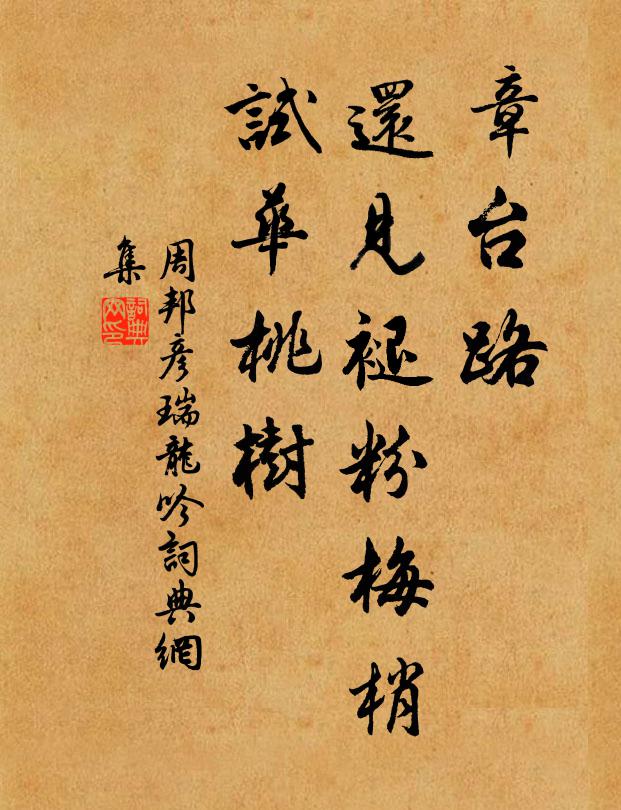 章台路
還見褪粉梅梢
試華桃樹
周邦彦瑞龍吟詞典網
集
詞典